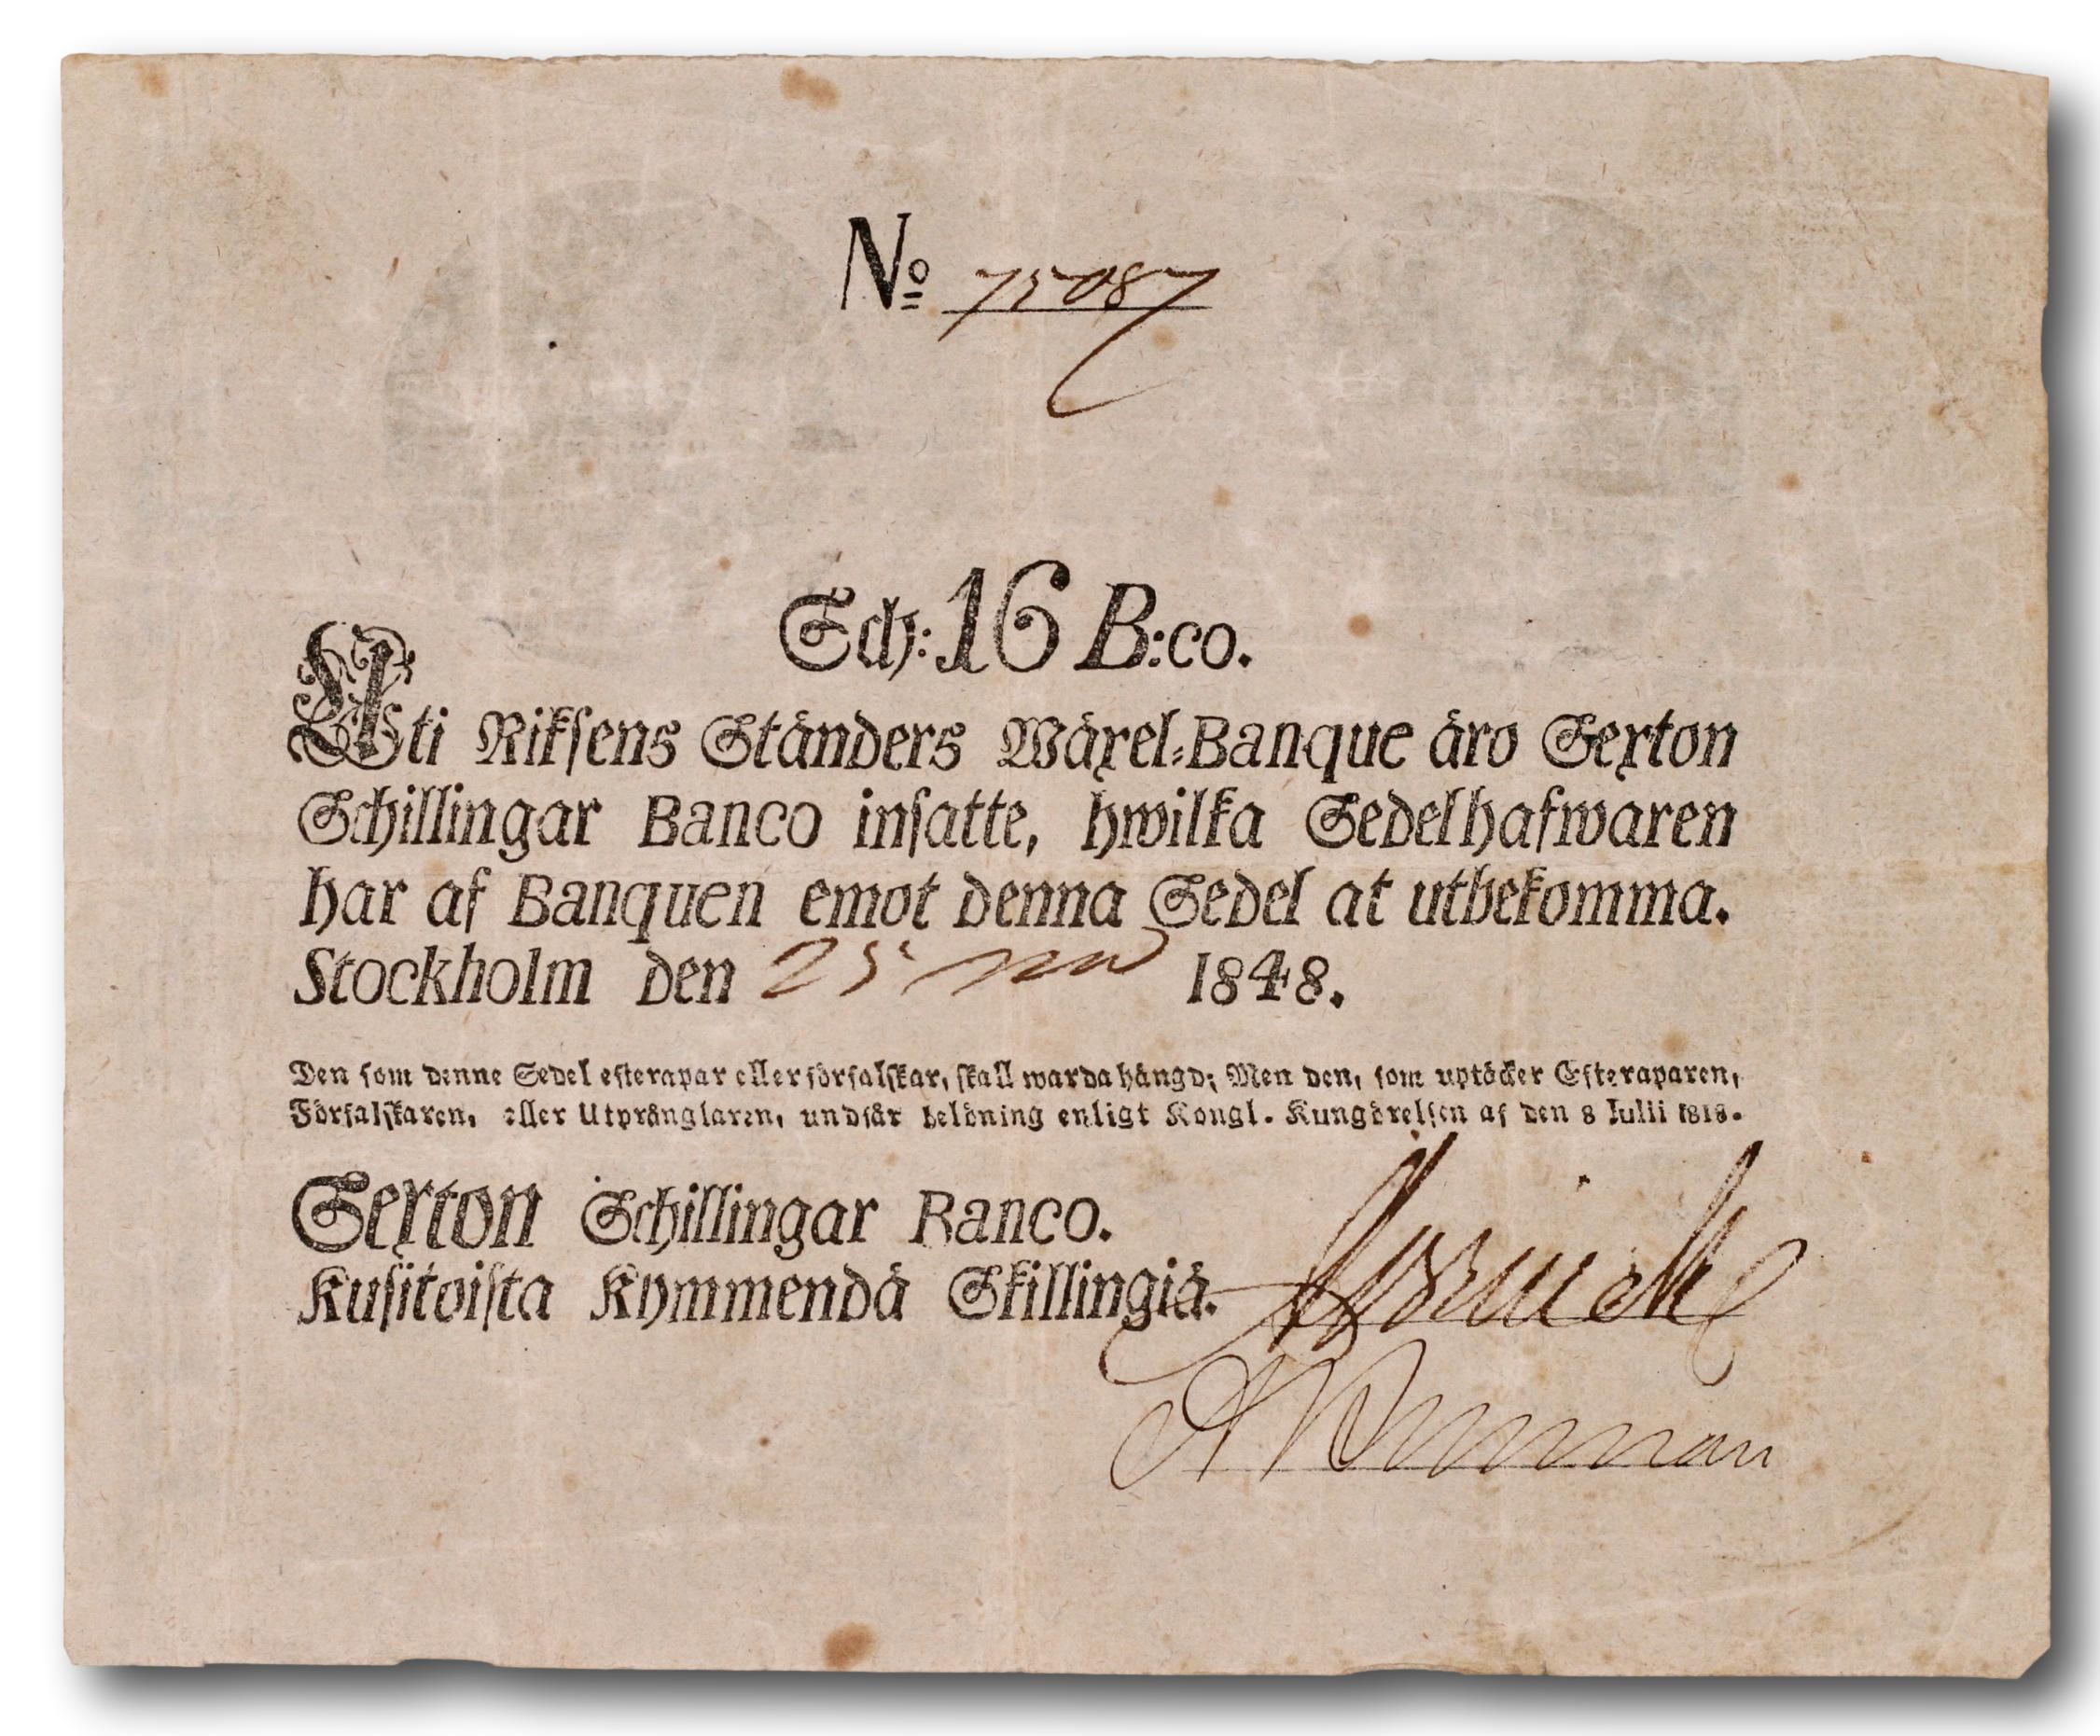 No 75087
Sch: 16 B:co.
Uti Riksens Ständers Wäxel-Banque äro Sexton
Schillingar Banco insatte, hwilka Sedelhafwaren
har af Banquen emot denna Sedel at utbekomma.
Stockholm den 25 1848.
Den som denne Sedel efterapar eller förfalskar, skall warda hängd; Men den, som uptäcker Efteraparen,
Förfalskaren, eller Utprånglaren, undfår belöning enligt Kongl. Kungörelsen af den 8 Julii 1818.
Sexton Schillingar Banco.
Kusitoista Kymmendä Skillingiä.